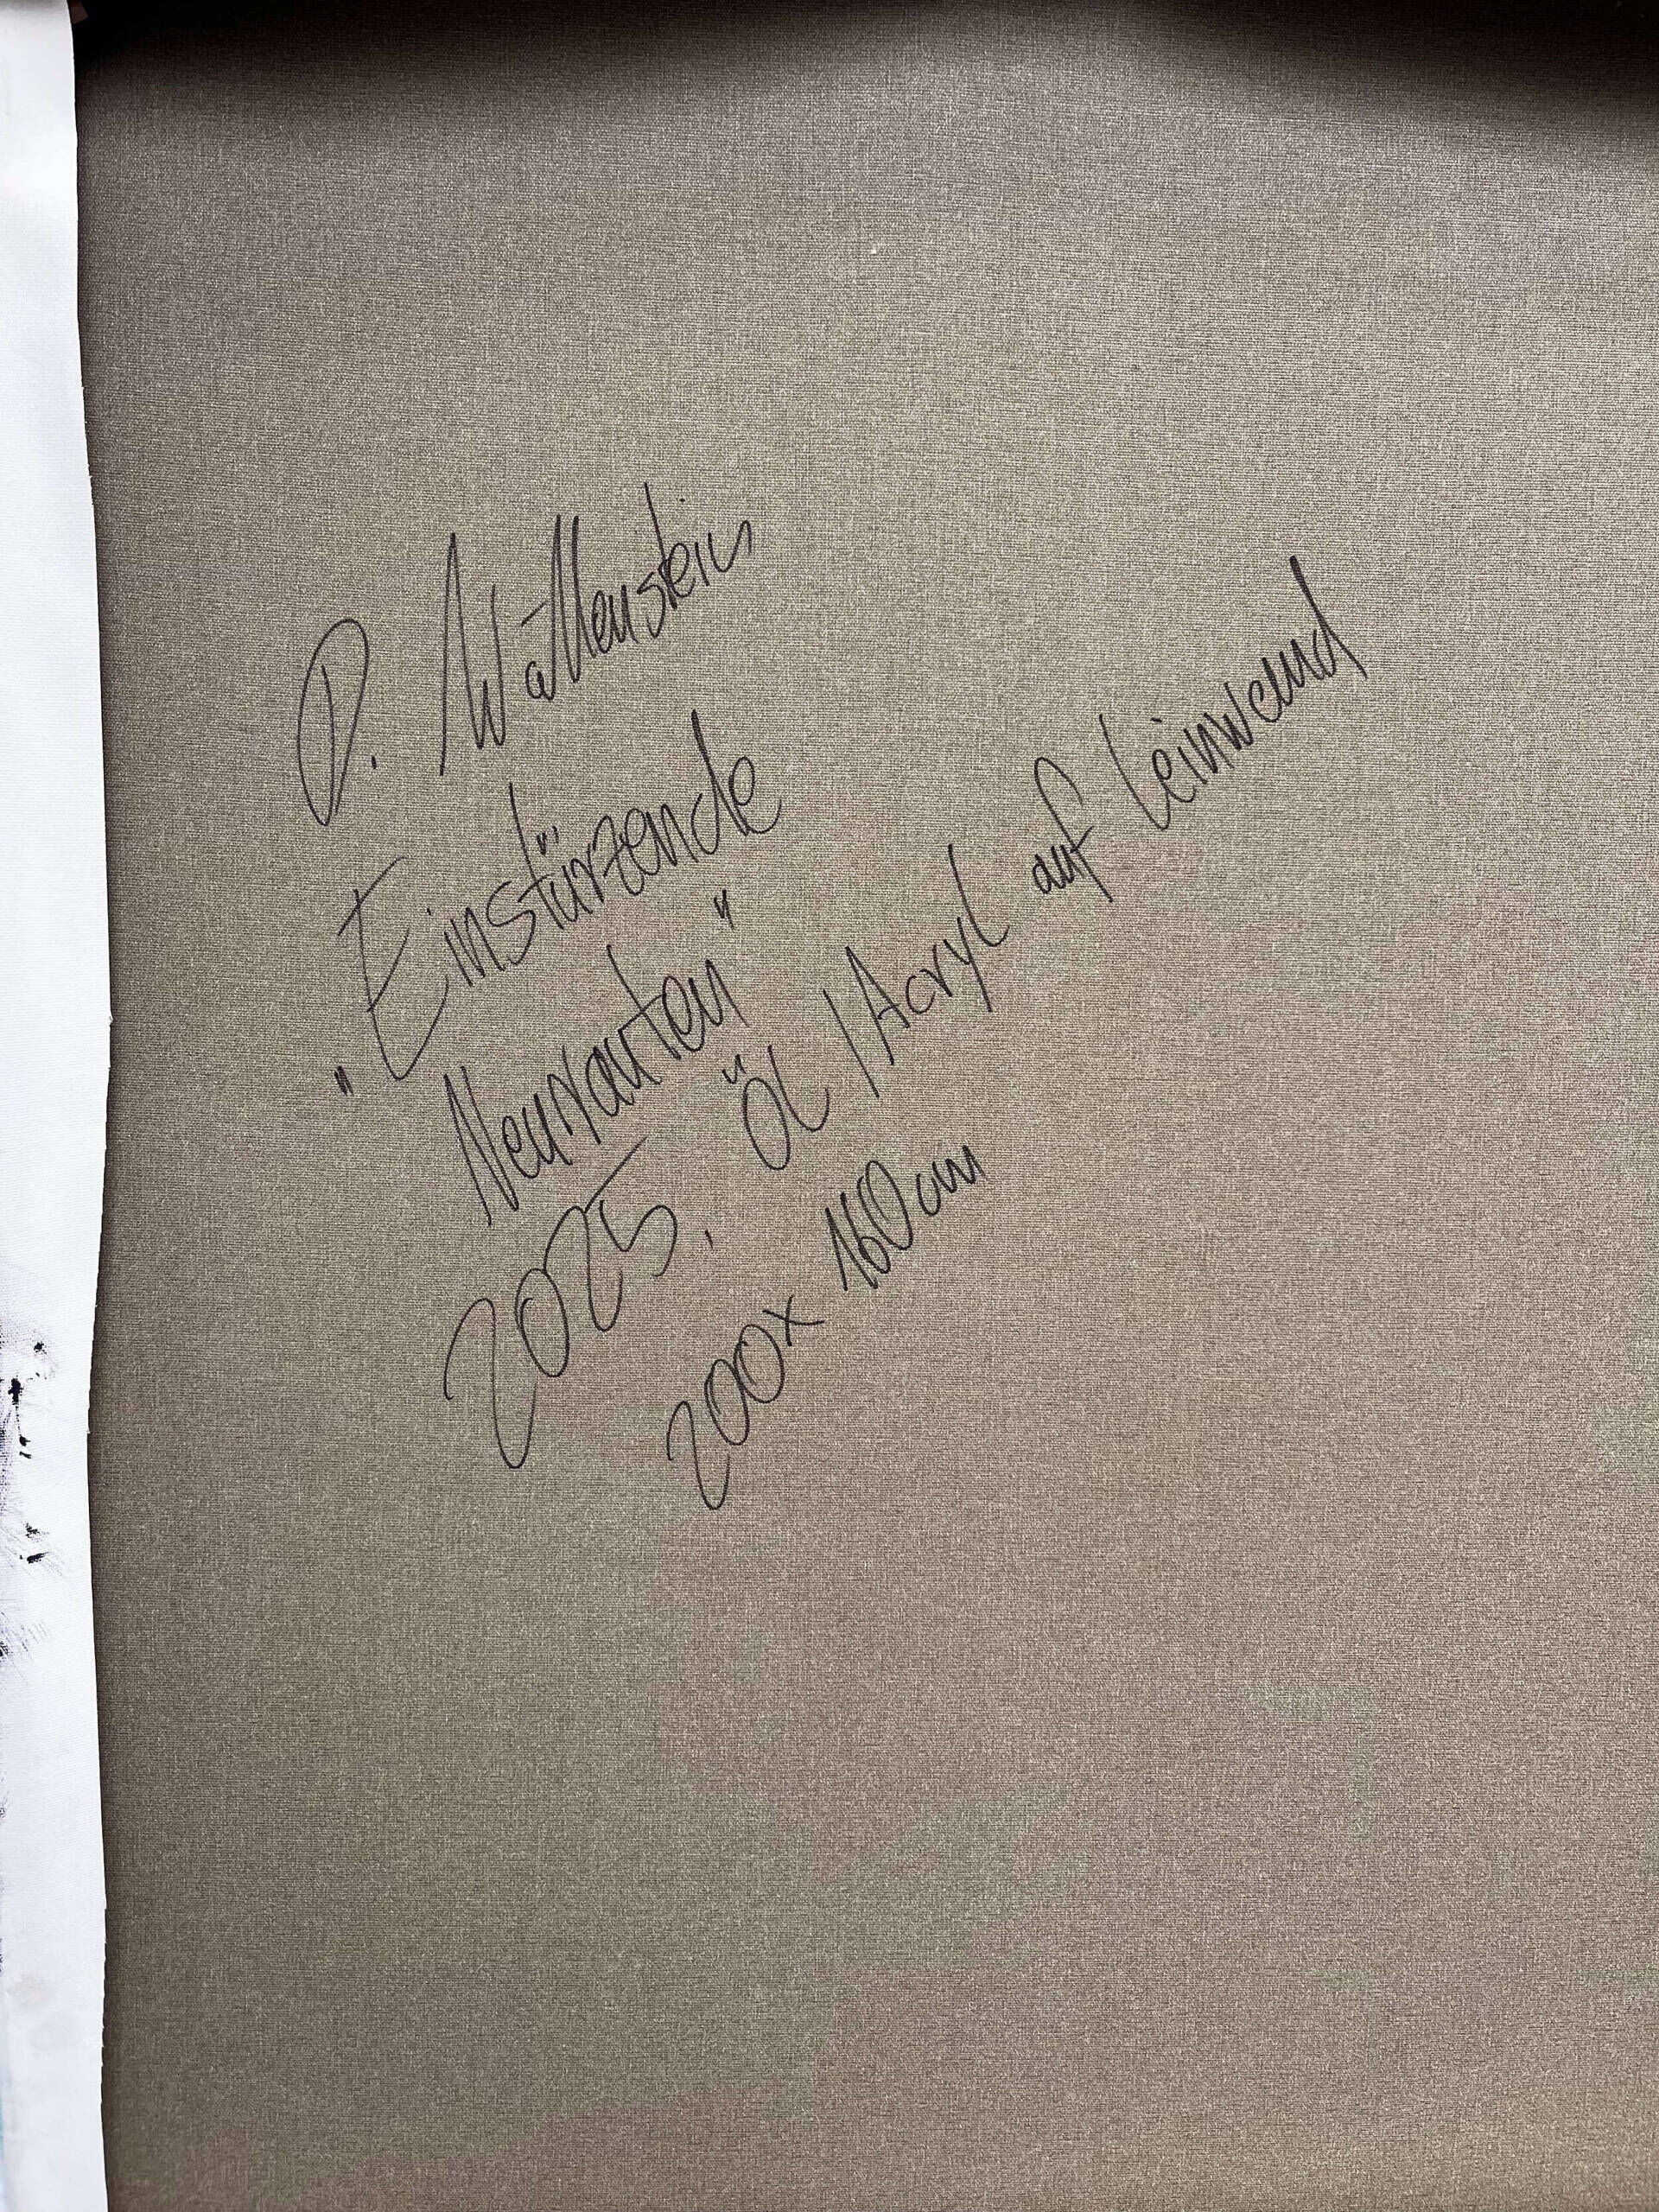 D. Wallenstein
"Einstürzende
Neubauten"
2025, Öl / Acryl auf Leinwand
200x 160 cm